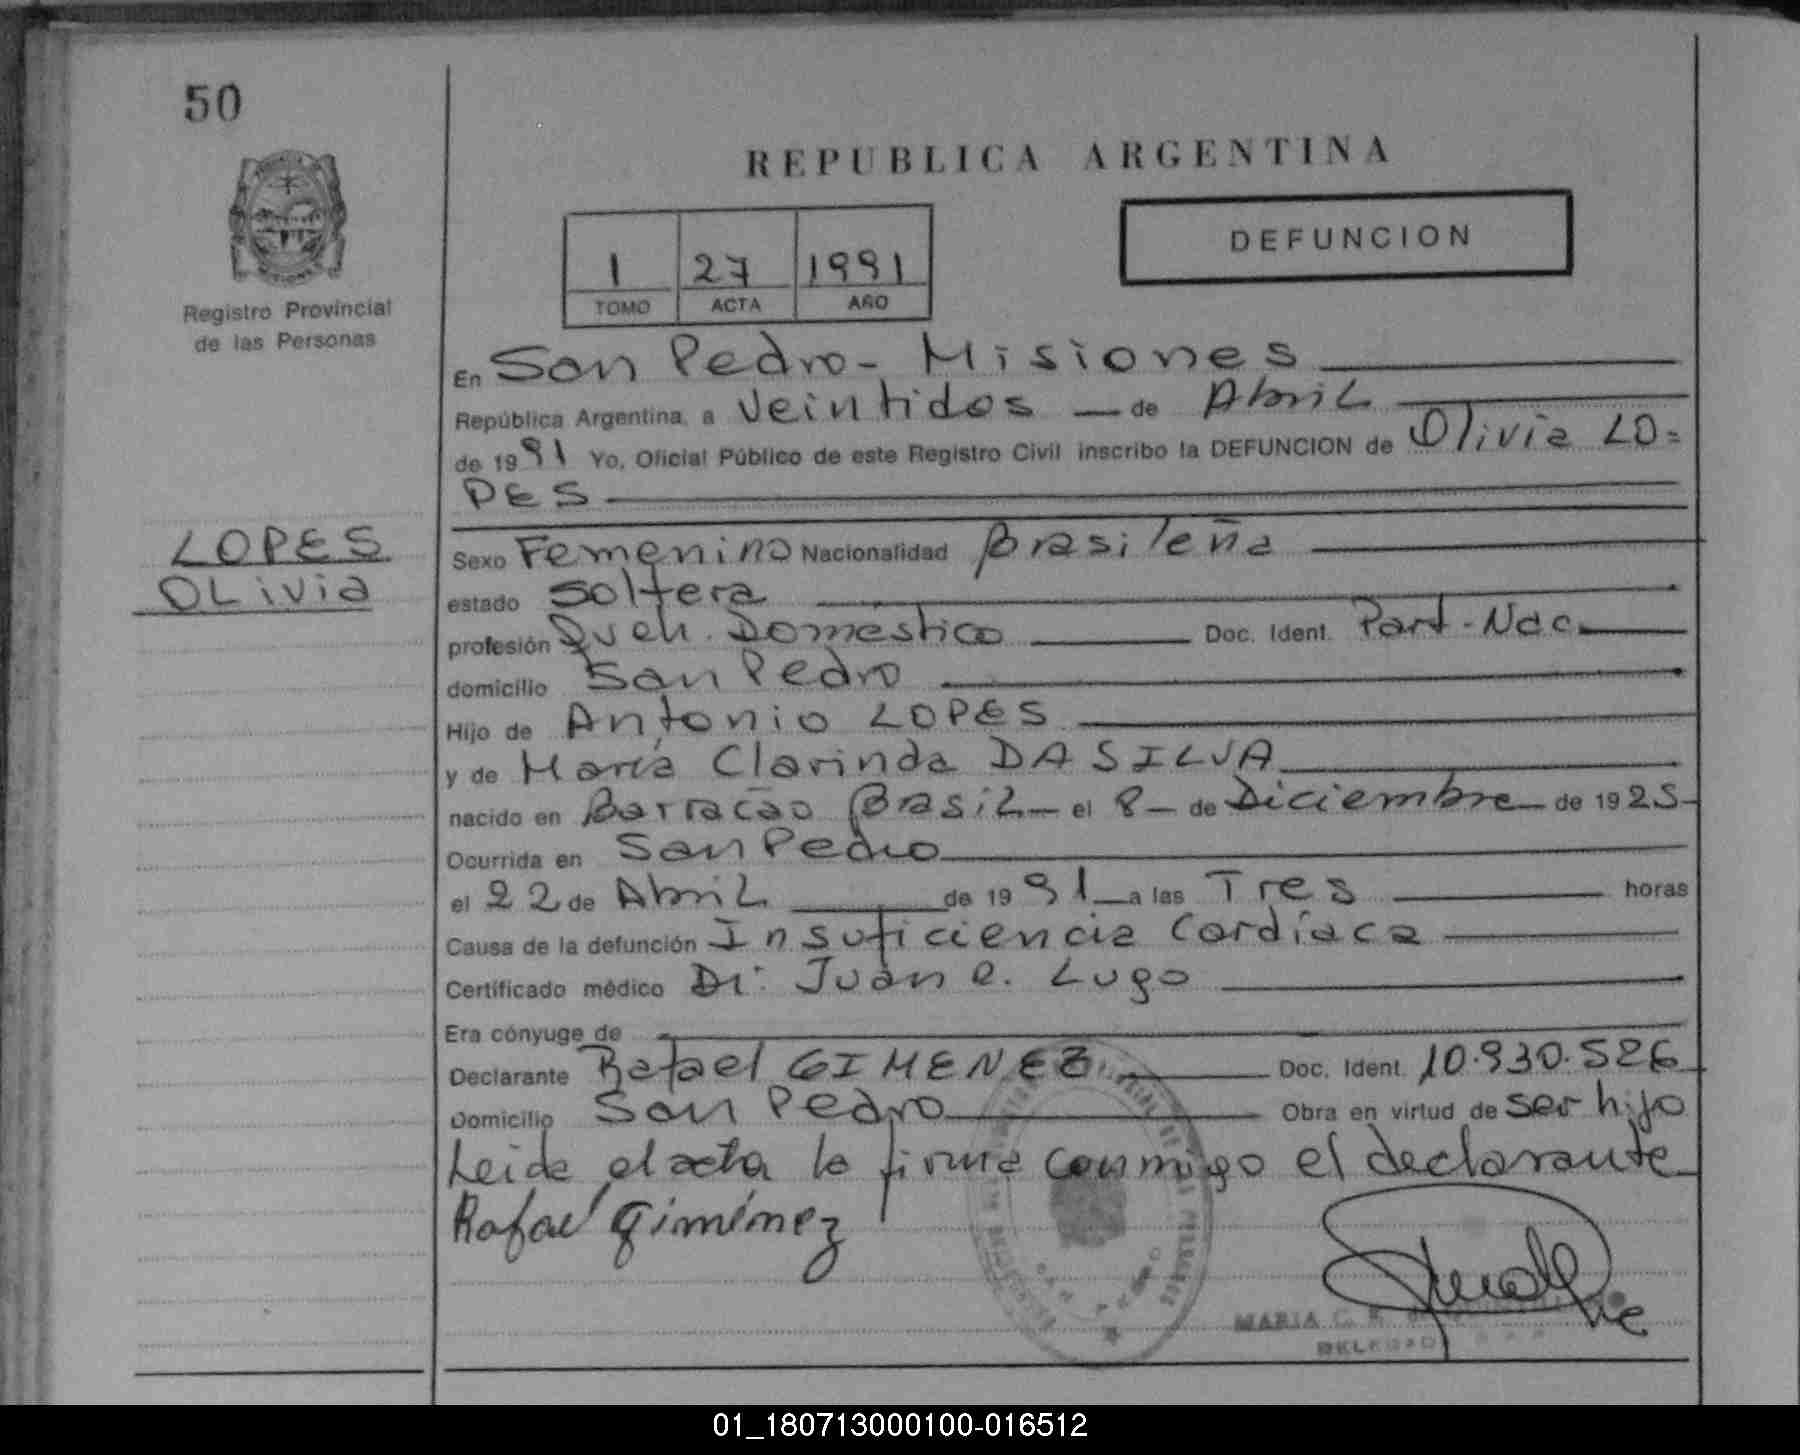 50
REPUBLICA ARGENTINA
DEFUNCION
1 27 1991
TOMO ACTA AÑO
Registro Provincial
de las Personas
En San Pedro - Misiones
República Argentina, a Veintidos de Abril
de 1991 Yo, Oficial Público de este Registro Civil inscribo la DEFUNCION de Olivia LO=
PES
LOPES
OLivia
Sexo Femenino Nacionalidad Brasileña
estado Soltera
profesión Queh. Domestico Doc. Ident. Part-Nac.
domicilio San Pedro
Hijo de Antonio LOPES
y de María Clarinda DA SILVA
nacido en Barracão Brasil el 8 de Diciembre de 1925
Ocurrida en San Pedro
el 22 de Abril de 1991 a las Tres horas
Causa de la defunción Insuficiencia Cardíaca
Certificado médico Dr: Juan e. Lugo
Era cónyuge de
Declarante Rafael GIMENEZ Doc. Ident. 10.930.526
Domicilio San Pedro Obra en virtud de ser hijo
Leida el acta la firma conmigo el declarante
Rafael Giménez
MARIA C.
01_180713000100-016512